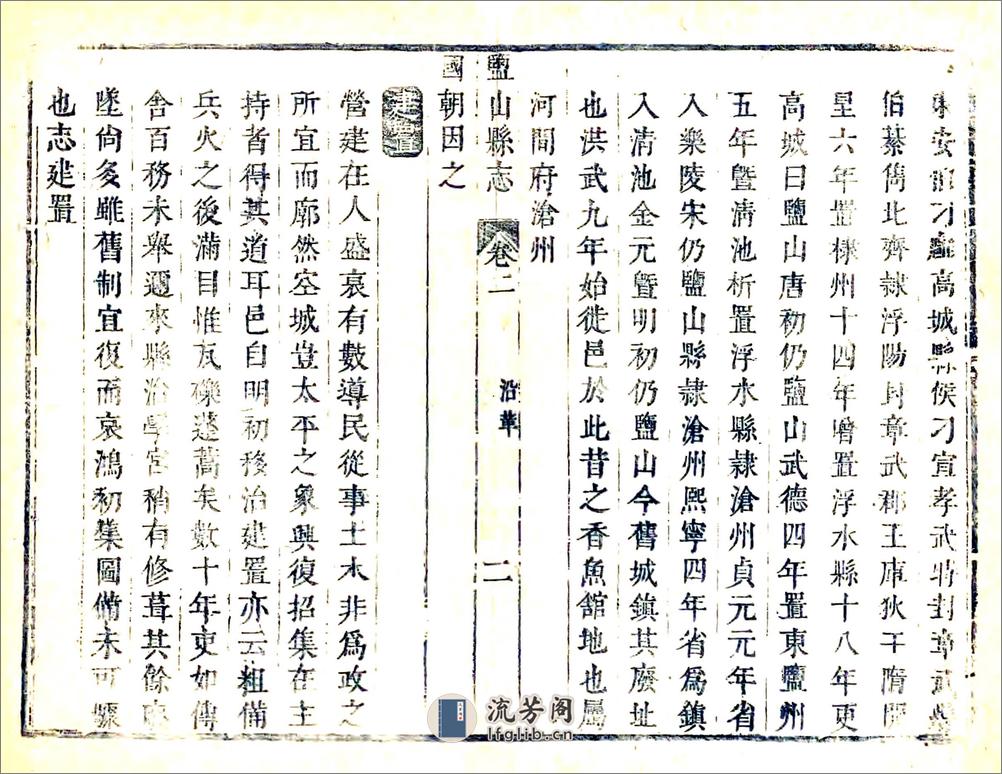 安 刁雍高城縣侯刁宣孝武時封章武縣
伯綦儁北齊隸浮陽封章武郡王庫狄干隋開
皇六年置棣州十四年增置浮水縣十八年更
高城曰鹽山唐初仍鹽山武德四年置東鹽州
五年曁淸池析置浮水縣隷滄州貞元元年省
入樂陵宋仍鹽山縣隷滄州熙寧四年省爲鎭
入淸池金元曁明初仍鹽山今舊城鎭其廢址
也洪武九年始徙邑於此昔之香魚舘地也屬
河間府滄州
鹽山縣志 卷二 沿革 二
國朝因之
建置
營建在人盛衰有數導民從事土木非爲政之
所宜而廓然空城豈太平之象興復招集在主
持者得其道耳邑自明初移治建置亦云粗備
兵火之後滿目惟瓦礫蓬蒿矣數十年吏如傳
舍百務未舉邇來縣治學宮稍有修葺其餘
墜尙多雖舊制宜復而哀鴻初集圖備未可驟
也志建置
流芳阁
lfglib.cn